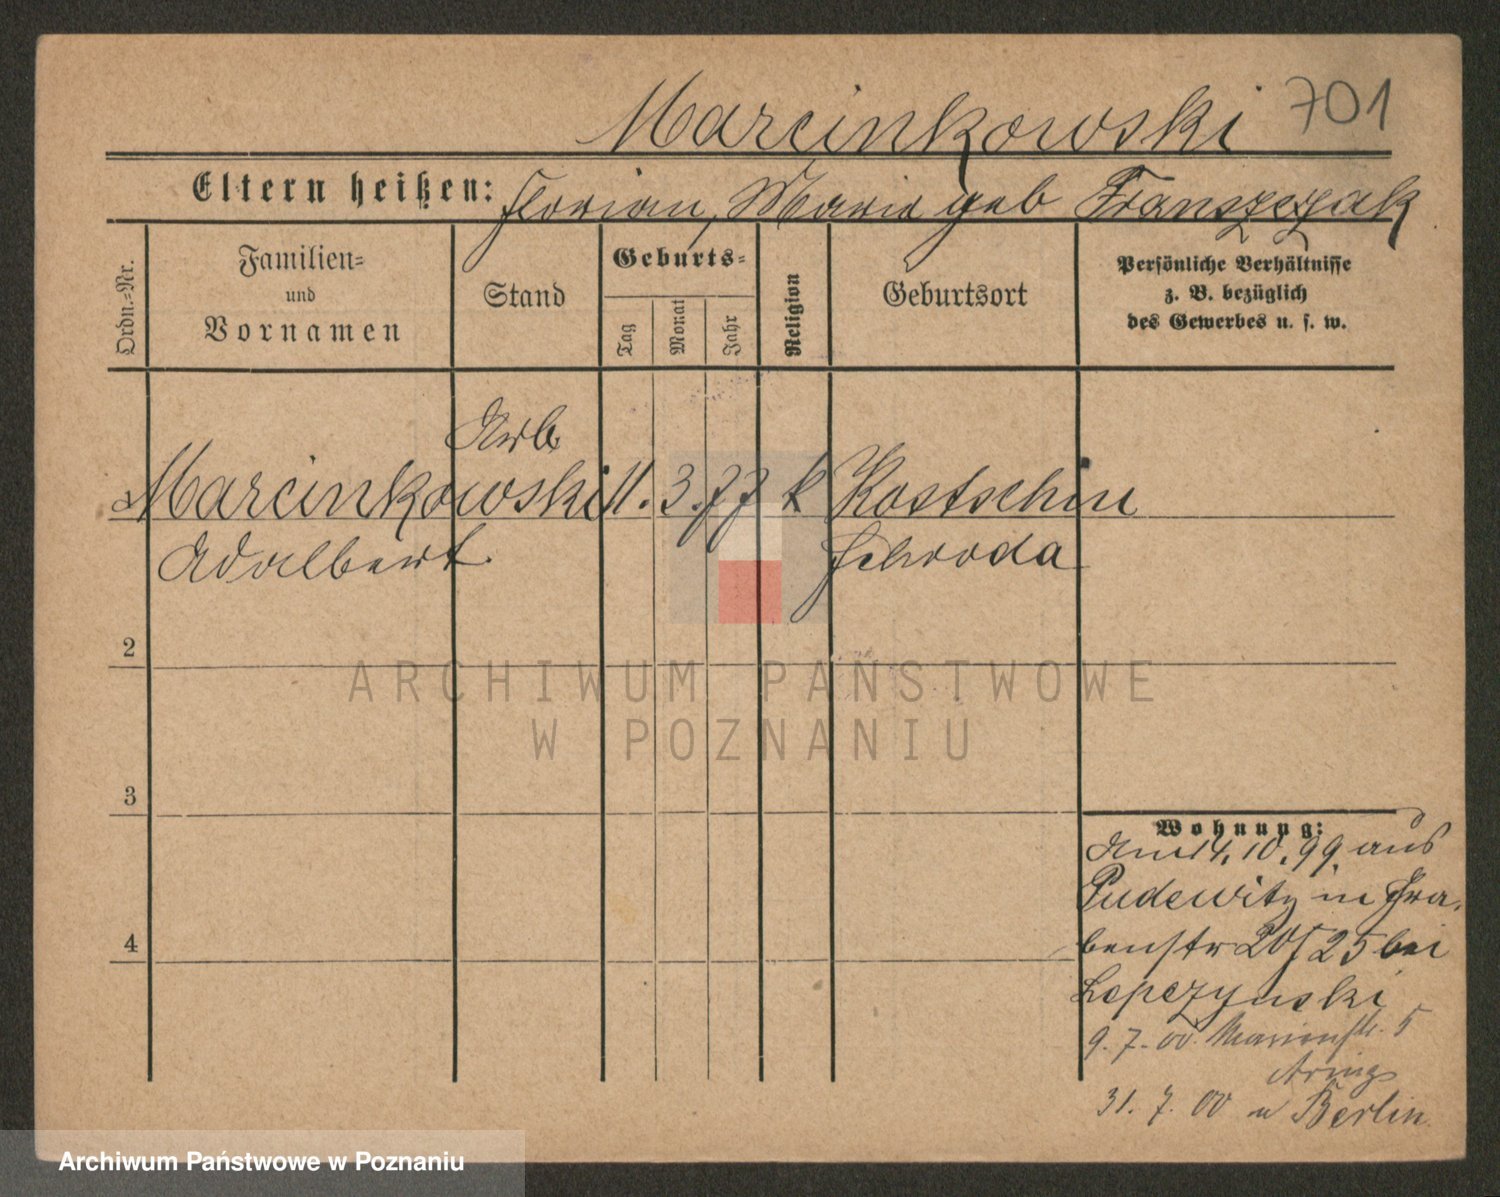 Marcinkowski 701
Eltern heißen: Florian, Marie geb Franszczak
Ordn.-Nr.
Familien-
und
Vornamen
Stand
Geburts-
Tag
Monat
Jahr
Religion
Geburtsort
Persönliche Verhältnisse
z. B. bezüglich
des Gewerbes u. s. w.
Arb
Marcinkowski 11. 3. 77 k Kostschin
Adalbert Schroda
2
3
4
Wohnung:
Am 14. 10. 99 aus
Pudewitz in Gra-
benstr 20/25 bei
Lepczynski
9. 7. 00. Marienstr. 5
31. 7. 00 n Berlin
ARCHIWUM PAŃSTWOWE
W POZNANIU
Archiwum Państwowe w Poznaniu